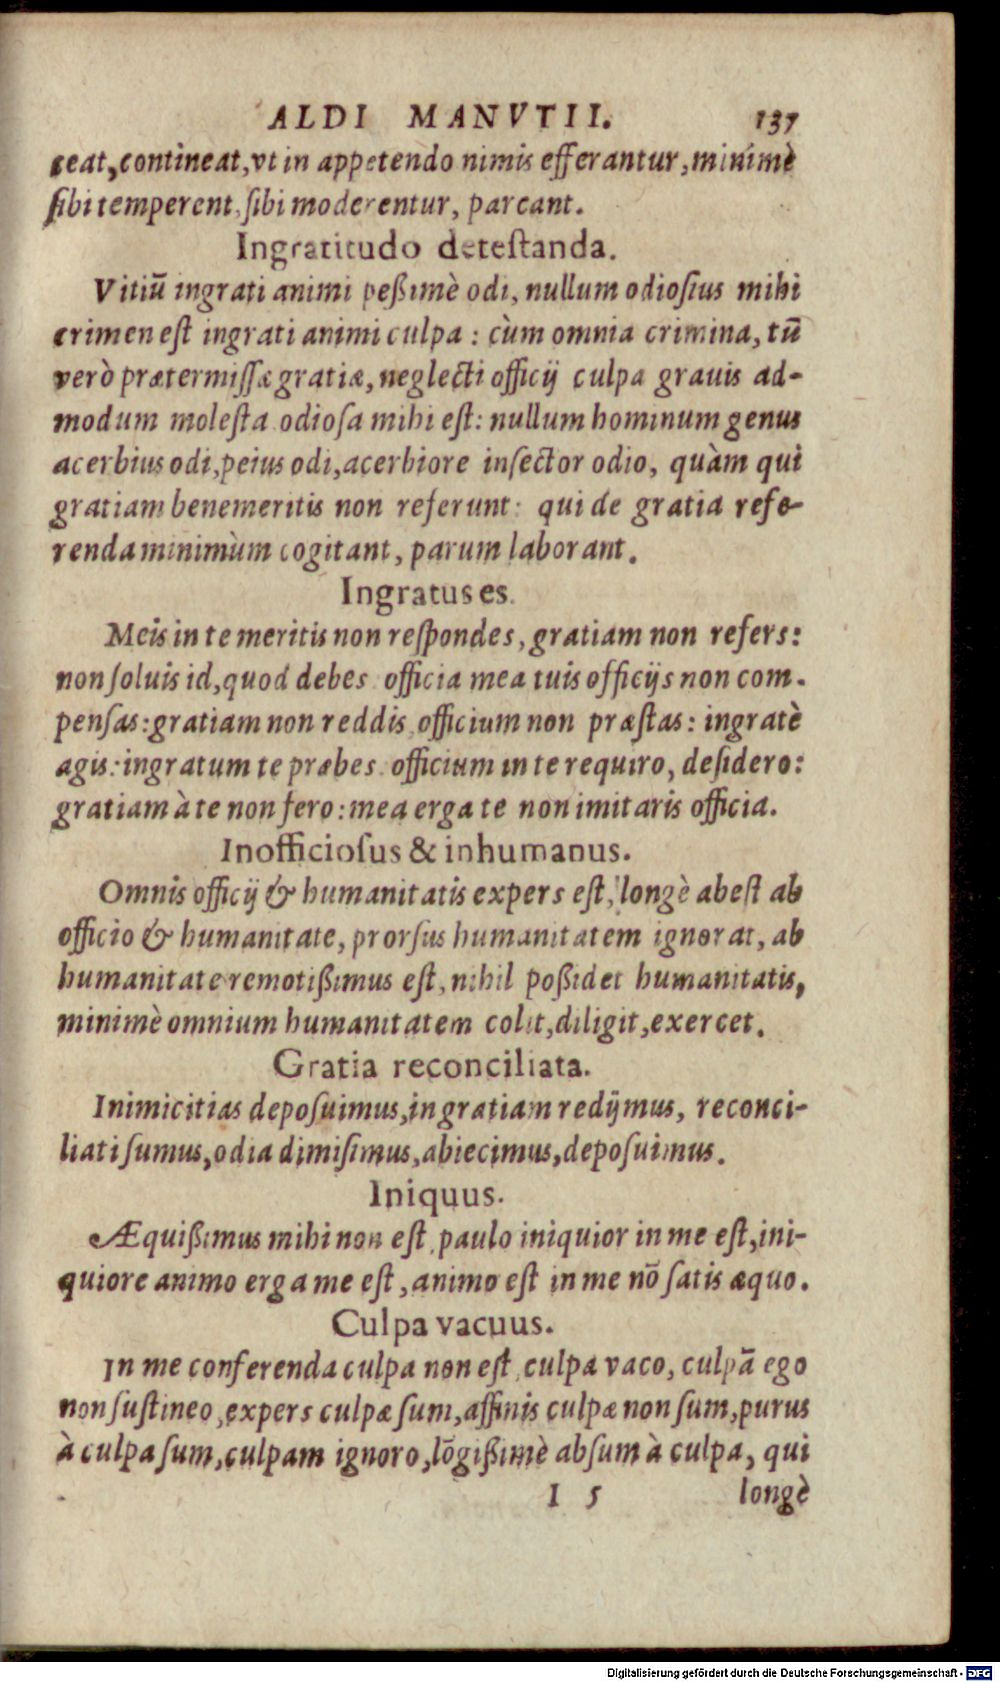 ALDI MANVTII. 137
ceat, contineat, vt in appetendo nimis efferantur, minimè
ſibi temperent, ſibi moderentur, parcant.
Ingratitudo deteſtanda.
Vitiũ ingrati animi peßimè odi, nullum odioſius mihi
crimen eſt ingrati animi culpa: cùm omnia crimina, tũ
verò prætermiſſæ gratiæ, neglecti officij culpa grauis ad-
modum moleſta odioſa mihi eſt: nullum hominum genus
acerbius odi, peius odi, acerbiore inſector odio, quàm qui
gratiam benemeritis non referunt: qui de gratia refe-
renda minimùm cogitant, parum laborant.
Ingratus es.
Meis in te meritis non reſpondes, gratiam non refers:
non ſoluis id, quod debes officia mea tuis officijs non com-
penſas: gratiam non reddis, officium non præſtas: ingratè
agis: ingratum te præbes. officium in te requiro, deſidero:
gratiam à te non fero: mea erga te non imitaris officia.
Inofficioſus & inhumanus.
Omnis officij & humanitatis expers eſt, longè abeſt ab
officio & humanitate, prorſus humanitatem ignorat, ab
humanitate remotißimus eſt, nihil poßidet humanitatis,
minimè omnium humanitatem colit, diligit, exercet.
Gratia reconciliata.
Inimicitias depoſuimus, in gratiam redijmus, reconci-
liati ſumus, odia dimiſimus, abiecimus, depoſuimus.
Iniquus.
Æquißimus mihi non eſt, paulo iniquior in me eſt, ini-
quiore animo erga me eſt, animo eſt in me nõ ſatis æquo.
Culpa vacuus.
In me conferenda culpa non eſt, culpa vaco, culpã ego
non ſuſtineo, expers culpæ ſum, affinis culpæ non ſum, purus
à culpa ſum, culpam ignoro, lõgißimè abſum à culpa, qui
I 5 longè
Digitalisierung gefördert durch die Deutsche Forschungsgemeinschaft - DFG